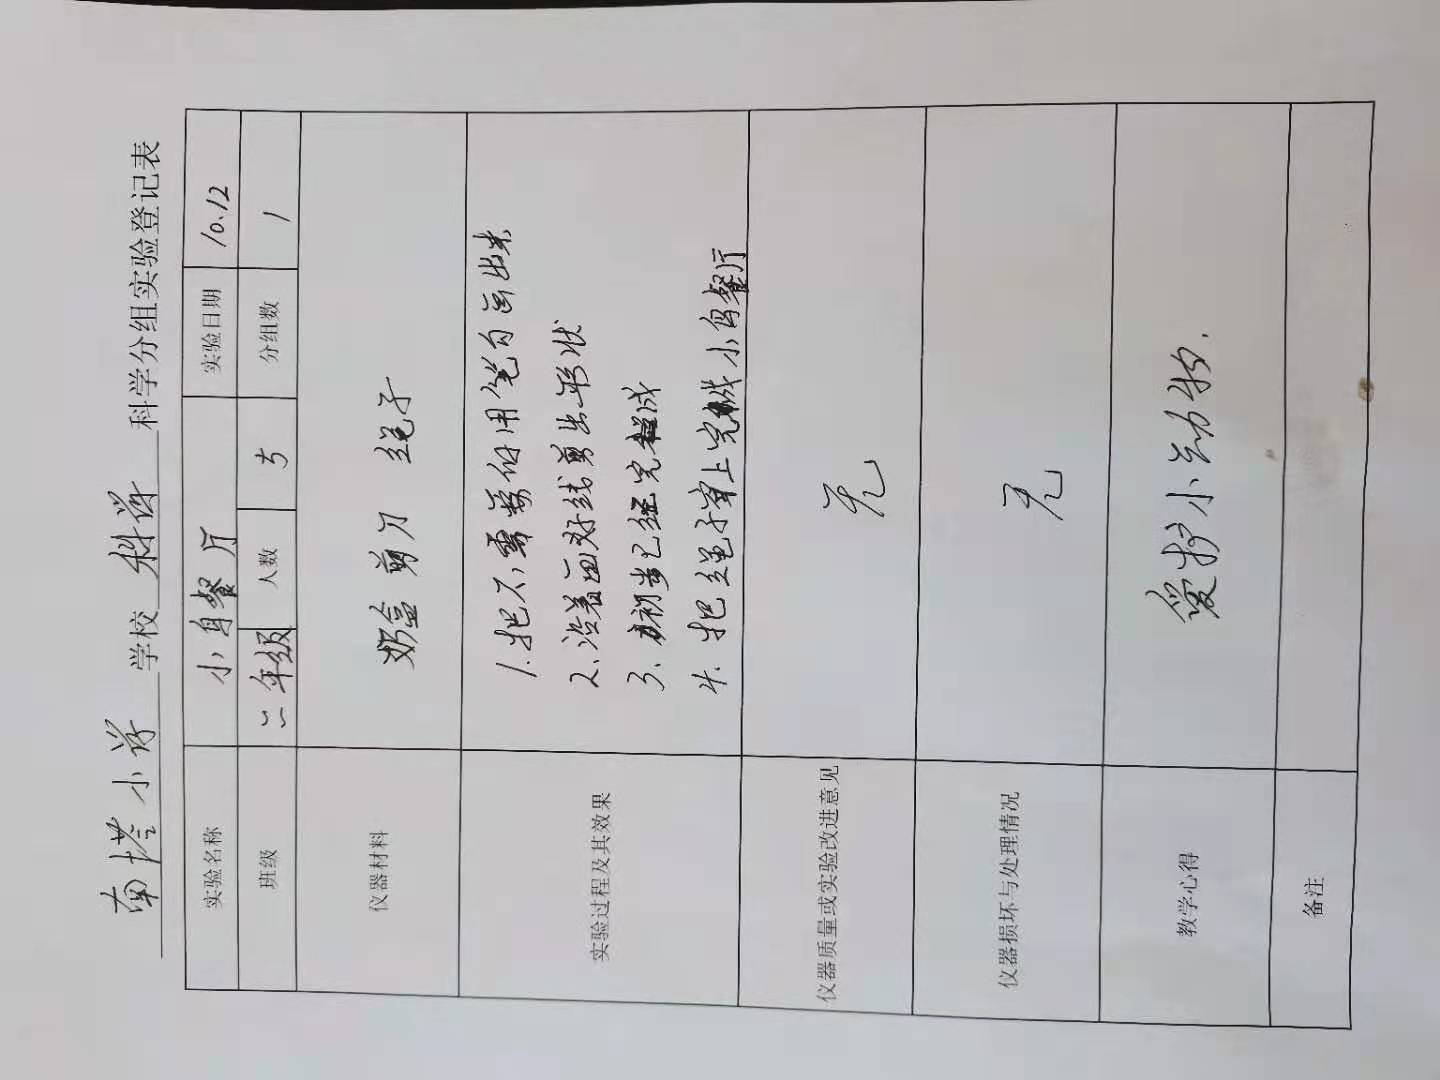 南塔小学 学校 科学 科学分组实验登记表
实验名称 小鸟餐厅 实验日期 10.12
班级 二年级 人数 5 分组数 1
仪器材料 奶盒 剪刀 绳子
实验过程及其效果
1.把不需要的用笔勾画出来
2.沿着画好线剪出形状
3.初步已经完成
4.把绳子穿上完成小鸟餐厅
仪器质量或实验改进意见 无
仪器损坏与处理情况 无
教学心得 爱护小动物.
备注